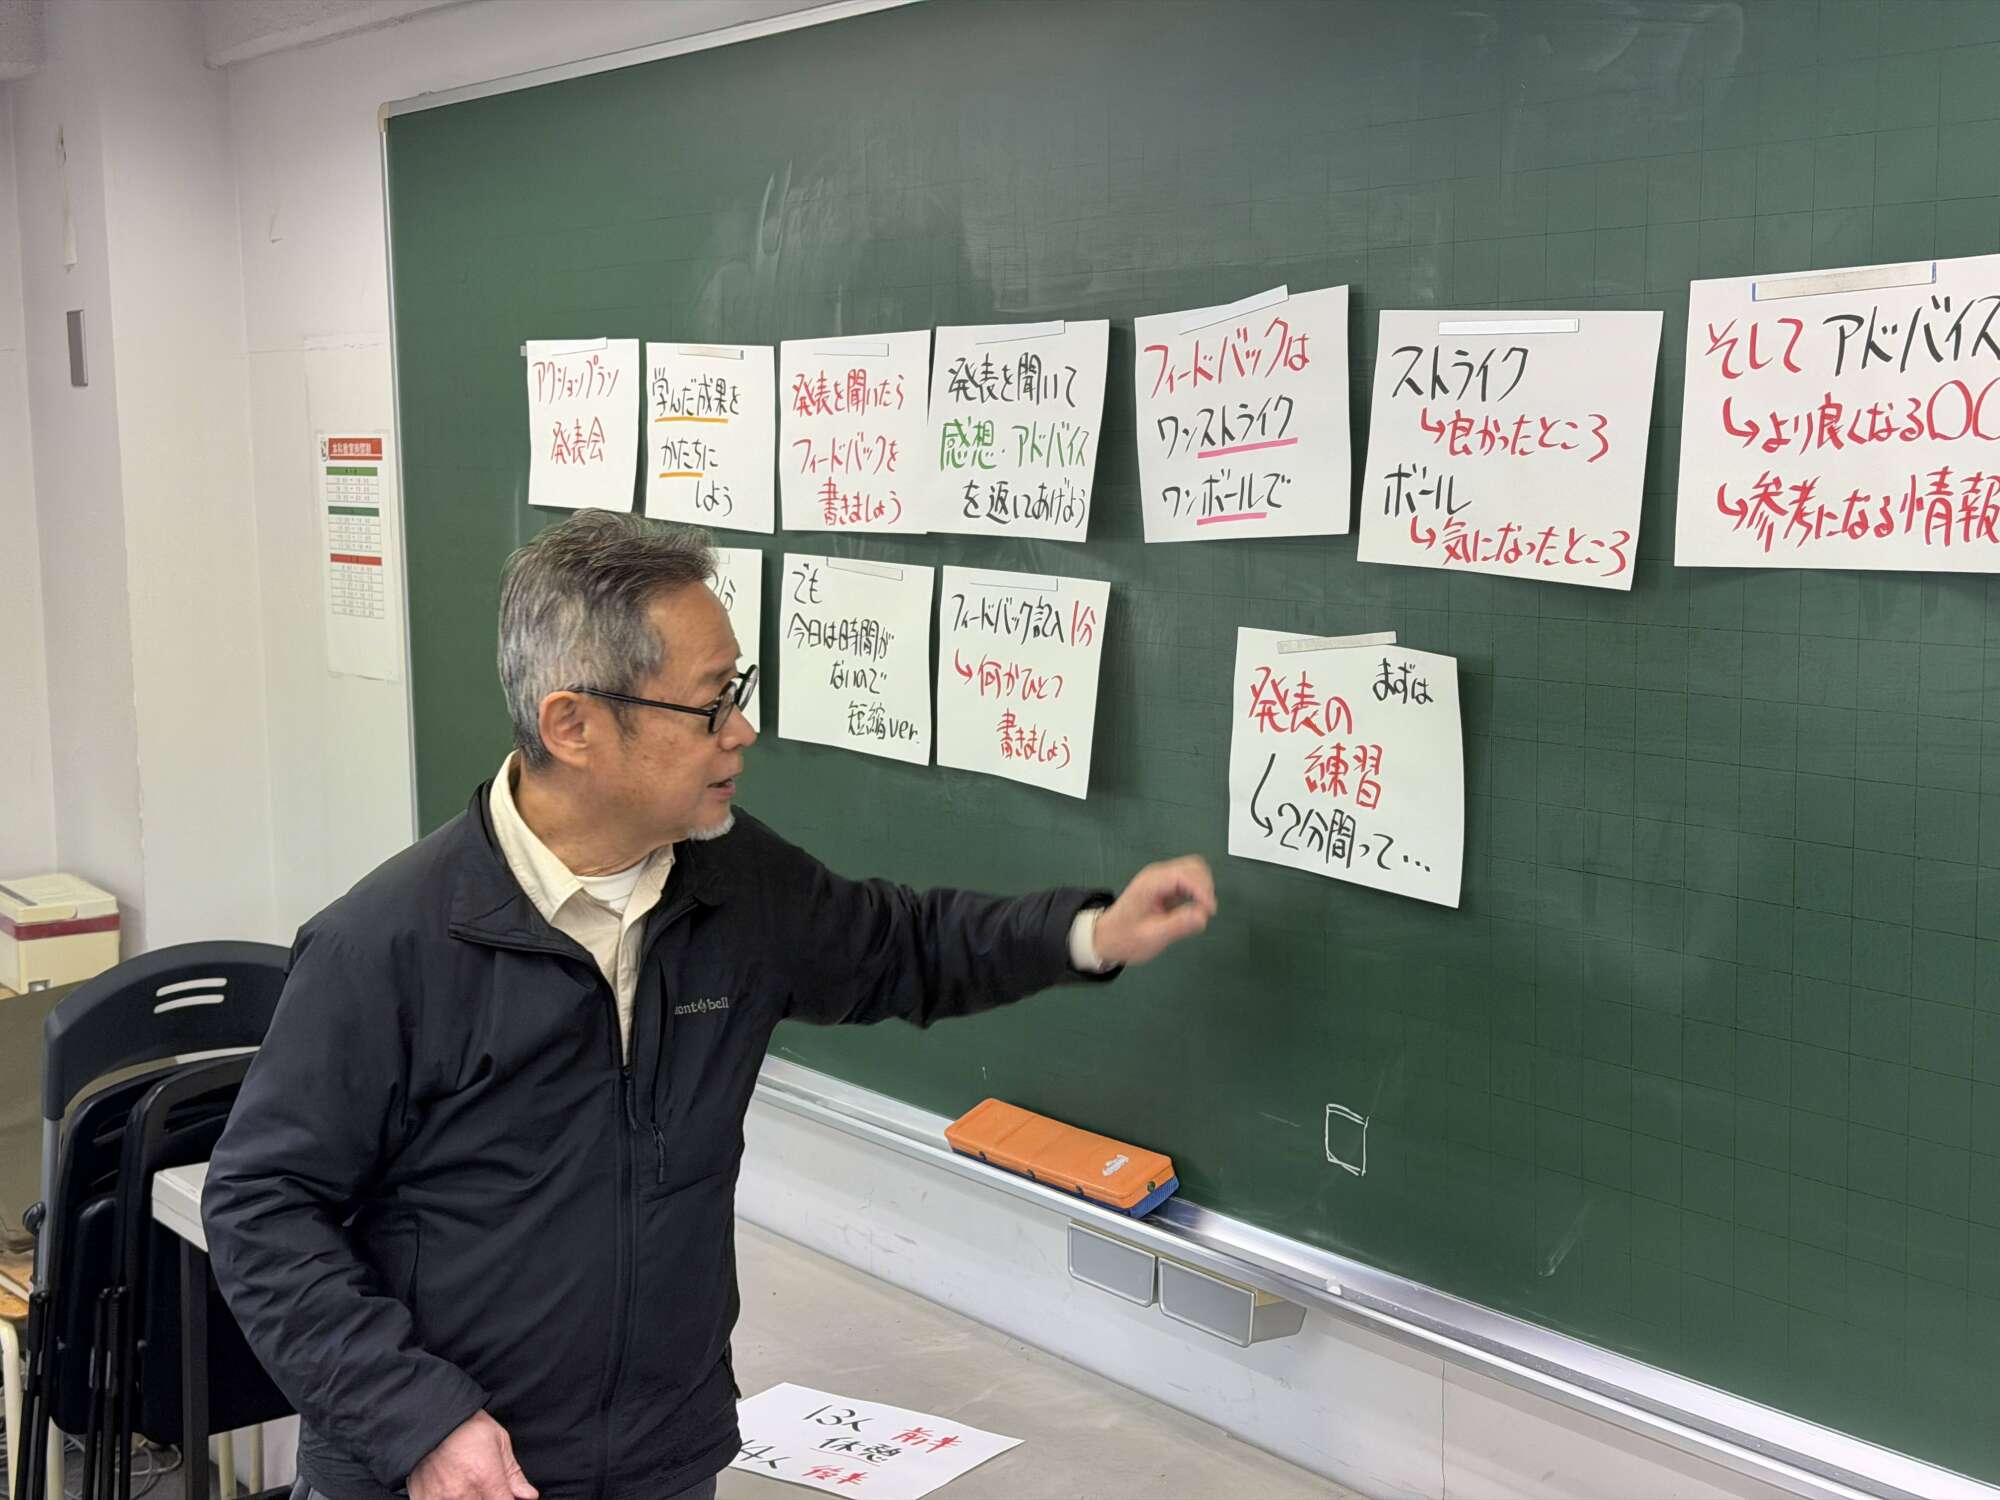 アクションプラン
発表会
学んだ成果を
かたちに
しよう
発表を聞いたら
フィードバックを
書きましょう
発表を聞いて
感想・アドバイス
を返してあげよう
フィードバックは
ワンストライク
ワンボールで
ストライク
↳良かったところ
ボール
↳気になったところ
そして アドバイス
↳より良くなる〇〇
↳参考になる情報
分
でも
今日は時間が
ないので
短縮ver.
フィードバック記入1分
↳何かひとつ
書きましょう
まずは
発表の
練習
↳2分間って…
mont bell
13人 前半
休憩